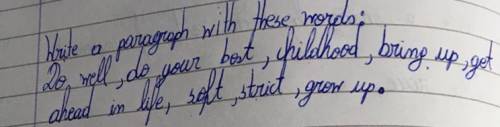 Write a paragraph with these words:
Do, well, do your best, childhood, bring up, get
ahead in life, soft, strict, grow up.